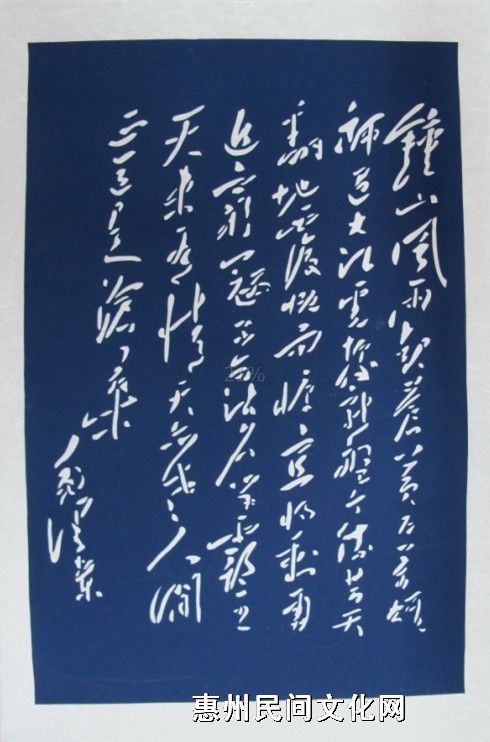 鐘山風雨起蒼黃百萬雄
師過大江虎踞龍盤今勝昔天
翻地覆慨而慷宜將剩勇
追窮寇不可沽名學霸王
天若有情天亦老人間
正道是滄桑
毛澤東
惠州民间文化网